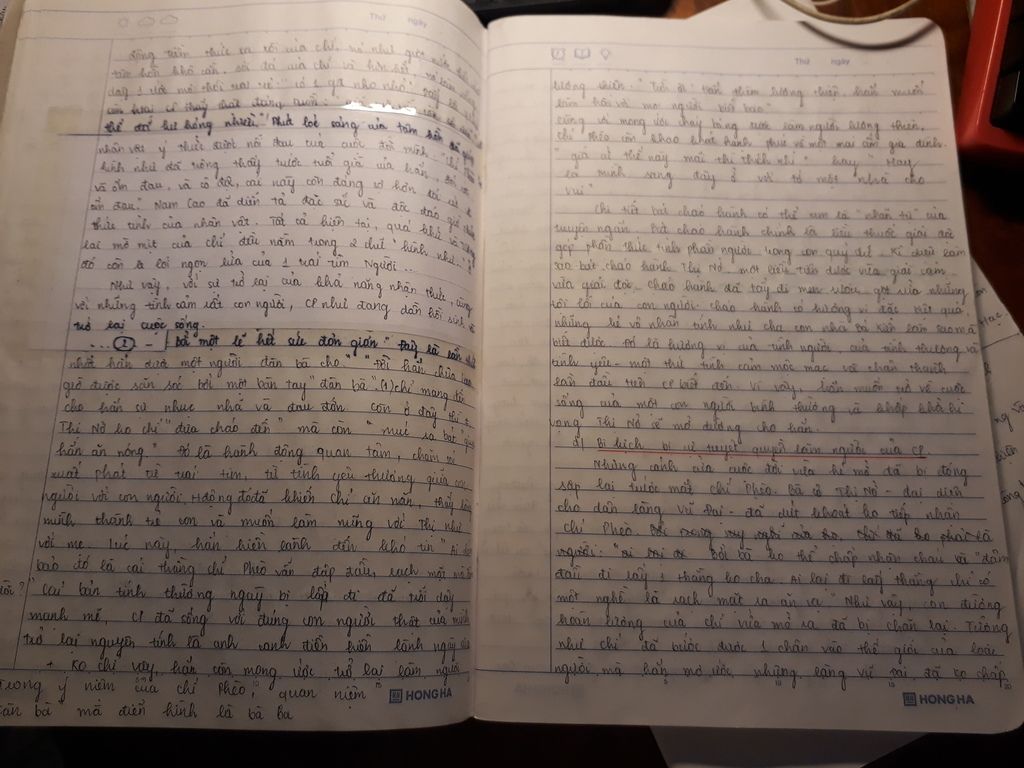 Thứ ngày
động trên thức
bởi mơ hồi
thể đã hư hỏng nhiều". Phút loé sáng của tâm hồn đã giúp
nhân vật ý thức được nỗi đau của cuộc đời mình, "chí
hình như đã trông thấy trước tuổi già của hắn, đói rét
và ốm đau, và cô độc, cái này còn đáng sợ hơn đói rét và
ốm đau." Nam Cao đã diễn tả đặc sắc và độc đáo
thức tỉnh của nhân vật. Tất cả hiện tại, quá khứ và tương
lai mờ mịt của chí đều nằm trong 2 chữ "hình như"...
đó còn là lời ngọn lửa của 1 trái tim Người...
Như vậy, với sự trở lại của khả năng nhận thức, cùng
với những tình cảm rất con người, CP như đang dần hồi sinh và
trở lại cuộc sống.
... ① - Bởi "một lẽ hết sức đơn giản" "Đây là lần thứ
nhất hắn được một người đàn bà cho." "Đời hắn chưa bao
giờ được săn sóc bởi một bàn tay "đàn bà". (1) chỉ mang đến
cho hắn sự nhục nhã và đau đớn còn ở đây thì #
Thị Nở ko chỉ "đưa cháo đến" mà còn "múc ra bát" giục
hắn ăn nóng". Đó là hành động quan tâm, chăm sóc
xuất phát từ trái tim, từ tình yêu thương giữa con
người với con người. Hđộng đó đã khiến Chí ăn năn, thấy lòng
mình thành trẻ con và muốn làm nũng với Thị như
với mẹ. Lúc này, hắn hiền lành đến khó tin "Ai dám
bảo đó là cái thằng chí Phèo vẫn đập đầu, rạch mặt mà đâm
" Cái bản tính thường ngày bị lấp đi đã trỗi dậy
mạnh mẽ, CP đã sống với đúng con người thật của mình
trở lại nguyên tính là anh canh điền hiền lành ngày xưa
+ Ko chỉ vậy, hắn còn mong ước trở lại làm người
Trong ý niệm của chí Phèo, quan niệm
đàn bà" mà điển hình là bà Ba
HONG HA
Thứ ngày
lương thiện. "Trời ơi! Hắn thèm lương thiện, hắn muốn
làm hòa với mọi người biết bao"
Cùng với mong ước cháy bỏng được làm người lương thiện,
Chí Phèo còn khao khát hạnh phúc về một mái ấm gia đình.
"giá cứ thế này mãi thì thích nhỉ" hay "Hay
là mình sang đây ở với tớ một nhà cho
vui"
Chi tiết bát cháo hành có thể xem là "nhãn tự" của
truyện ngắn. Bát cháo hành chính là liều thuốc giải độc
góp phần thức tỉnh phần người trong con quỷ dữ. Kì diệu làm
sao bát cháo hành Thị Nở, một liều tiên dược vừa giải cảm
vừa giải độc. Cháo hành đã tẩy đi men rượu, gột rửa những
tội lỗi của con người. Cháo hành có hương vị đặc biệt quá,
những kẻ vô nhân tính như cha con nhà bá Kiến làm sao mà
biết được. Đó là hương vị của tình người, của tình thương và
tình yêu - một thứ tình cảm mộc mạc và chân thành
lần đầu tiên CP biết đến. Vì vậy, hắn muốn trở về cuộc
sống của một con người bình thường và khấp khởi hi
vọng Thị Nở sẽ mở đường cho hắn.
d) Bi kịch bị cự tuyệt quyền làm người của CP
Nhưng cánh cửa cuộc đời vừa hé mở đã bị đóng
sập lại trước mắt chí Phèo. Bà cô Thị Nở - đại diện
cho dân làng Vũ Đại - đã dứt khoát ko tiếp nhận
chí Phèo.
người: Bởi lẽ ko thể chấp nhận cháu và "đâm
đầu đi lấy 1 thằng ko cha. Ai lại đi lấy thằng chỉ có
một nghề là rạch mặt ra ăn vạ" Như vậy, con đường
hoàn lương của chí vừa mở ra đã bị chặn lại. Tưởng
như chí đã bước được 1 chân vào thế giới của loài
người mà hắn mơ ước, nhưng làng Vũ Đại, đã ko chấp
HONG HA